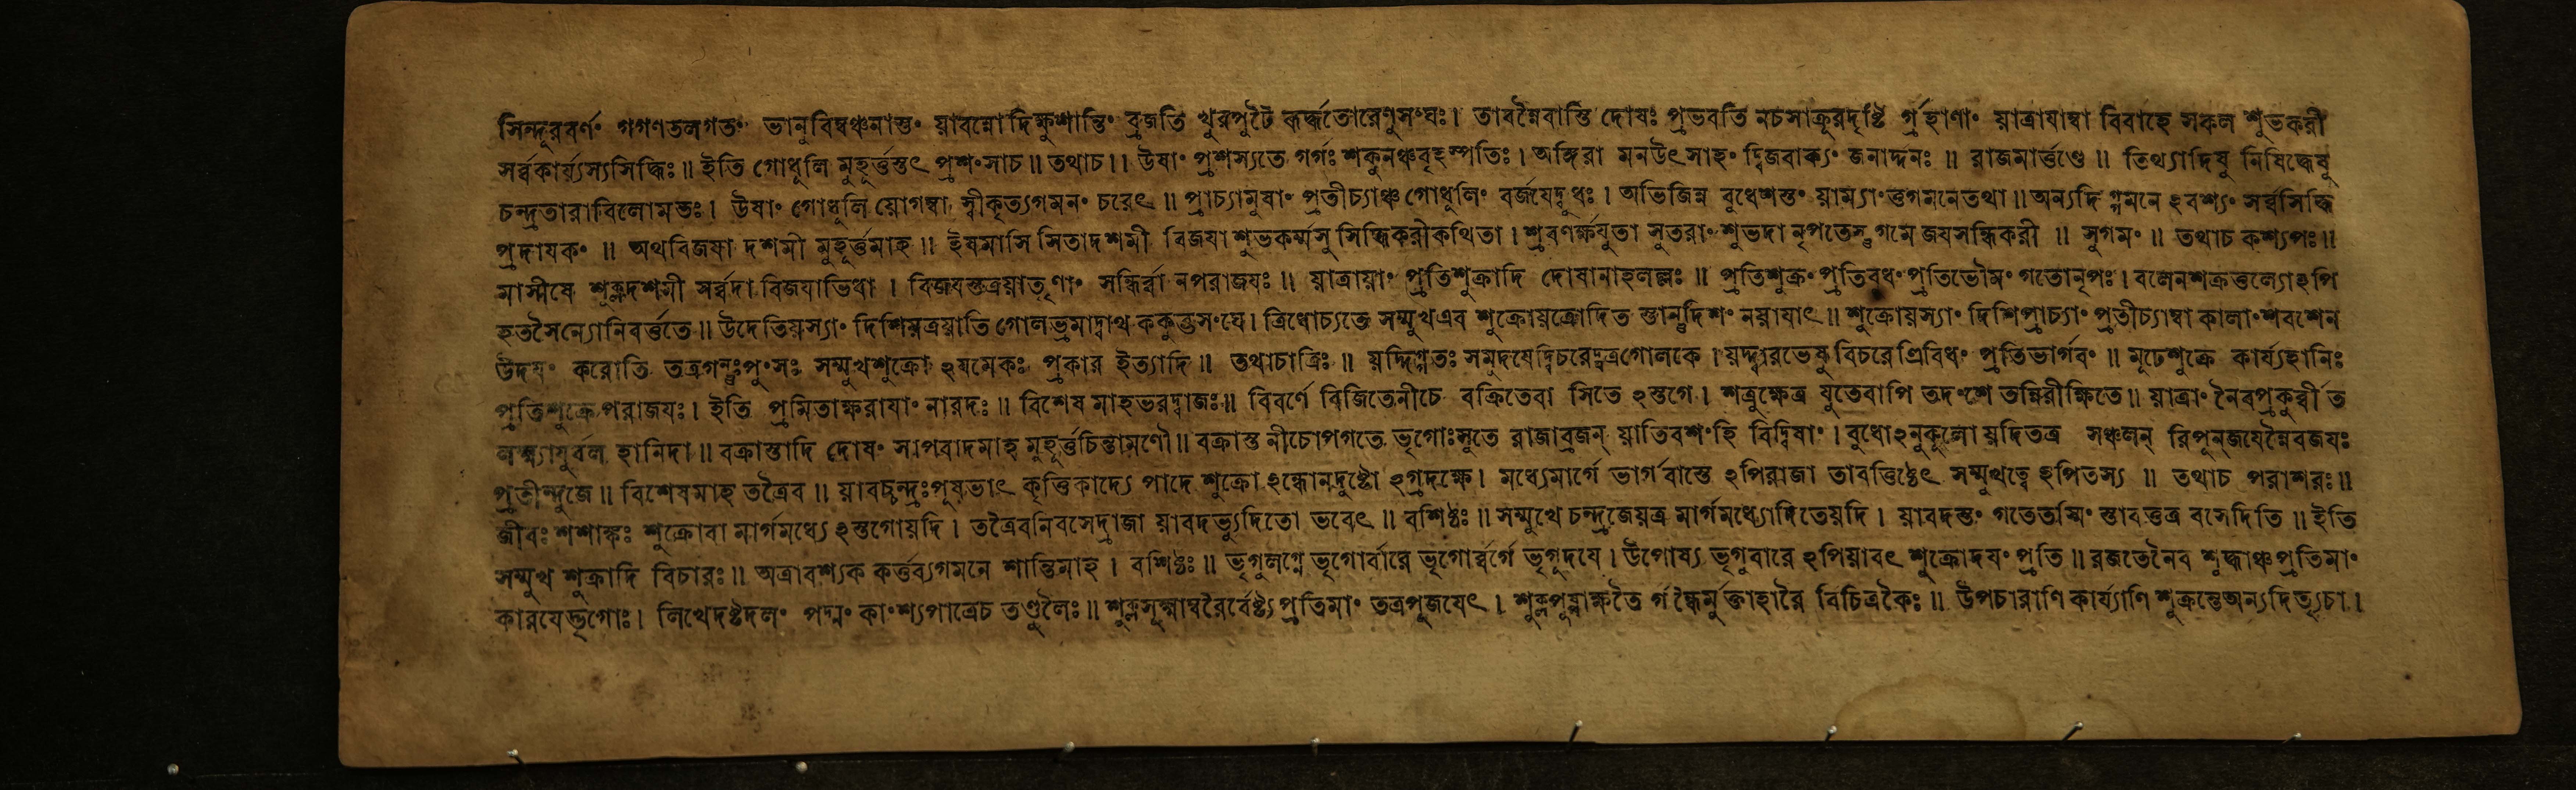 সিন্দূরবর্ণং গগণতলগতং ভানুবিম্বঞ্চমাস্তং য়াবন্নো দিক্ষুশান্তিং ব্রজতি খুরপুটৈ তোরেণুসংঘঃ। তাবন্নৈবাস্তি দোষঃ প্রভবতি নচসাক্রূরদৃষ্টি র্গ্রহাণাং য়াত্রাযাম্বা বিবাহে সকল শুভকরী
সর্ব্বকার্য়্যস্যসিদ্ধিঃ॥ ইতি গোধুলি মুহূর্ত্তস্তৎ প্রশংসাচ॥ তথাচ।। উষাং প্রশস্যতে গর্গঃ শকুনঞ্চবৃহস্পতিঃ। অঙ্গিরা মনউৎসাহং দ্বিজবাক্যং জনার্দ্দনঃ॥ রাজমার্ত্তণ্ডে॥ তিথ্যাদিষু নিষিদ্ধেষু
চন্দ্রতারাবিলোমতঃ। উষাং গোধুলি য়োগম্বা স্বীকৃত্যগমনং চরেৎ॥ প্রাচ্যামুষাং প্রতীচ্যাঞ্চ গোধুলিং বর্জযেদ্বুধঃ। অভিজিন্ন বুধেশস্তং য়াম্যাংস্তগমনেতথা॥ অন্যদিগ্গমনে ঽবশ্যং সর্ব্বসিদ্ধি
প্রদাযকং॥ অথবিজযা দশমী মুহূর্ত্তমাহ॥ ইষমাসি সিতাদশমী বিজযা শুভকর্ম্মসু সিদ্ধিকরীকথিতা। শ্রবণর্ক্ষযুতা সুতরাং শুভদা নৃপতেস্তু গমে জযসন্ধিকরী॥ সুগমং॥ তথাচ কশ্যপঃ॥
মাসীষে শুক্লদশমী সর্ব্বদা বিজযাভিধা। বিজযস্তত্রয়াতৄণাং সন্ধির্ব্বা নপরাজযঃ॥ য়াত্রায়াং প্রতিশুক্রাদি দোষানাহলল্লঃ॥ প্রতিশুক্রং প্রতিবুধং প্রতিভৌমং গতোনৃপঃ। বলেনশক্রতুল্যোঽপি
হতসৈন্যোনিবর্ত্ততে॥ উদেতিয়স্যাং দিশিয়ত্রয়াতি গোলভ্রমাদ্বাথ ককুব্ভসংঘে। ত্রিধোচ্যতে সম্মুখএব শুক্রোয়ত্রোদিত স্তান্তুদিশং নয়াযাৎ॥ শুক্রোয়স্যাং দিশিপ্রাচ্যাং প্রতীচ্যাম্বা কালাংশবশেন
উদযং করোতি তত্রগন্তুঃপুংসঃ সম্মুখশুক্রো ঽযমেকঃ প্রকার ইত্যাদি॥ তথাচাত্রিঃ॥ য়দ্দিগ্গতঃ সমুদযেদ্বিচরেদ্বত্রগোলকে। য়দ্দ্বারভেষু বিচরেত্ত্রিবিধং প্রতিভার্গবং॥ মূঢেশুক্রে কার্য্যহানিঃ
প্রতিশুক্রেপরাজযঃ। ইতি প্রমিতাক্ষরাযাং নারদঃ॥ বিশেষ মাহভরদ্বাজঃ॥ বিবর্ণে বিজিতেনীচে বক্রিতেবা সিতে ঽস্তগে। শত্রুক্ষেত্র যুতেবাপি তদংশে তন্নিরীক্ষিতে॥ য়াত্রাং নৈবপ্রকুর্ব্বীত
লক্ষ্ম্যায়ুর্বল হানিদা॥ বক্রাস্তাদি দোষং সাপবাদমাহ মুহূর্ত্তচিন্তামণৌ॥ বক্রাস্ত নীচোপগতে ভৃগোঃসুতে রাজাব্রজন্ য়াতিবশংহি বিদ্বিষাং। বুধোঽনুকূলো য়দিতত্র সঞ্চলন্ রিপূন্জযেন্নৈবজযঃ
প্রতীন্দুজে॥ বিশেষমাহ তত্রৈব॥ য়াবচ্চন্দ্রঃপূষভাৎ কৃত্তিকাদ্যে পাদে শুক্রো ঽন্ধোনদুষ্টো ঽগ্রদক্ষে। মধ্যেমার্গে ভার্গবাস্তে ঽপিরাজা তাবত্তিষ্ঠেৎ সম্মুখত্বে ঽপিতস্য॥ তথাচ পরাশরঃ॥
জীবঃ শশাঙ্কঃ শুক্রোবা মার্গমধ্যে ঽস্তগোয়দি। তত্রৈবনিবসেদ্রাজা য়াবদভ্যুদিতো ভবেৎ॥ বশিষ্ঠঃ॥ সম্মুখে চন্দ্রজেয়ত্র মার্গমধ্যোদিতেয়দি। য়াবদস্তং গতেতস্মিং স্তাবত্তত্র বসেদিতি॥ ইতি
সম্মুখ শুক্রাদি বিচারঃ॥ অত্রাবশ্যক কর্ত্তব্যগমনে শান্তিমাহ। বশিষ্ঠঃ॥ ভৃগুলগ্নে ভৃগোর্বারে ভৃগোর্ব্বর্গে ভৃগূদযে। উপোষ্য ভৃগুবারে ঽপিয়াবৎ শুক্রোদযং প্রতি॥ রজতেনৈব শুদ্ধাঞ্চপ্রতিমাং
কারযেদ্ভৃগোঃ। লিখেদষ্টদলং পদ্মং কাংশ্যপাত্রেচ তণ্ডুলৈঃ॥ শুক্লসূক্ষ্মাম্বরৈর্বেষ্ট্য প্রতিমাং তত্রপূজযেৎ। শুক্লপুষ্পাক্ষতৈ র্গন্ধৈর্মুক্তাহারৈ বিচিত্রকৈঃ॥ উপচারাণি কার্য্যাণি শুক্রন্তেঅন্যদিত্যৃচা।